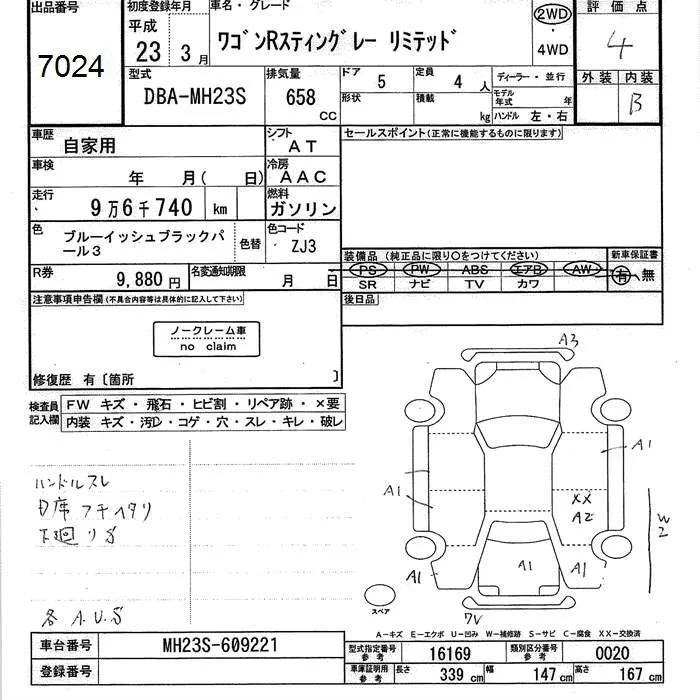 出品番号
7024
初度登録年月
平成
23 3月
車名・グレード
ワゴンRスティングレー リミテッド
2WD
・
4WD
評価点
4
外装 内装
B
型式
DBA-MH23S
排気量
658
CC
ドア 5
形状
定員 4 人
積載 kg
ディーラー・並行
モデル年式 年
ハンドル 左・右
車歴 自家用
シフト
AT
セールスポイント(正常に機能するものに限ります)
車検 年 月( 日)
冷房
AAC
走行 9万6千740 km
燃料
ガソリン
色 ブルーイッシュブラックパール3
色替
色コード
ZJ3
装備品(純正品に限り○をつけてください)
新車保証書
PS PW ABS エアB AW
SR ナビ TV カワ
有・無
R券 9,880円
名変通知期限 月 日
後日品
注意事項申告欄(不具合内容等は具体的に記入して下さい)
ノークレーム車
no claim
修復歴 有〔箇所 〕
検査員
記入欄
FW キズ・飛石・ヒビ割・リペア跡・×要
内装 キズ・汚レ・コゲ・穴・スレ・キレ・破レ
ハンドルスレ
D席フチヘタリ
下廻りS
各A.U.S
A3
A1
A1
XX
A2
W2
A1
A1
A1
7V
スペア
A-キズ E-エクボ U-凹み W-補修跡 S-サビ C-腐食 XX-交換済
車台番号 MH23S-609221
登録番号
型式指定番号
参考
16169
類別区分番号
参考
0020
車庫証明用
参考
長さ 339 cm
幅 147 cm
高さ 167 cm